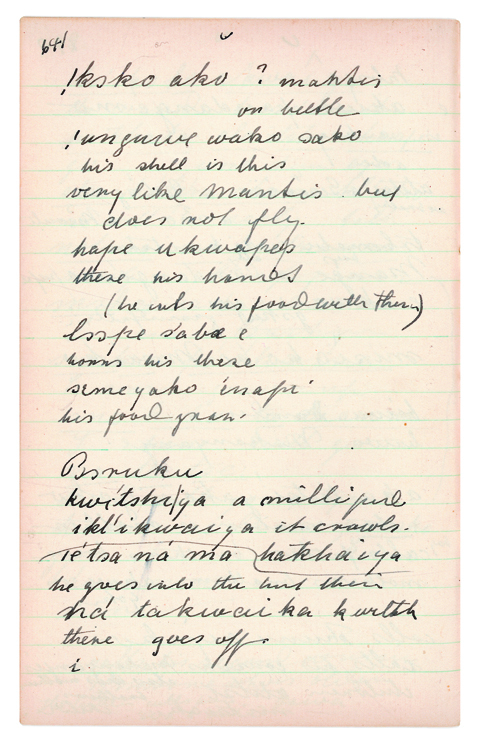 641
!ksko ako ? mantis
on beetle
!ungawe wako sako
his shell is this
very like Mantis but
does not fly.
hape ukwapes
these his hands
(he rubs his food with them)
lsspe s'aba e
horns his these
semeyako 'inapi'
his food gran.
Bsruku
kwítshi/ya a millipede
ikl'ikwaiya it crawls.
té'tsa ná ma hakhaiya
he goes into the hut then
ná takwaika kwitth
there goes off.
i